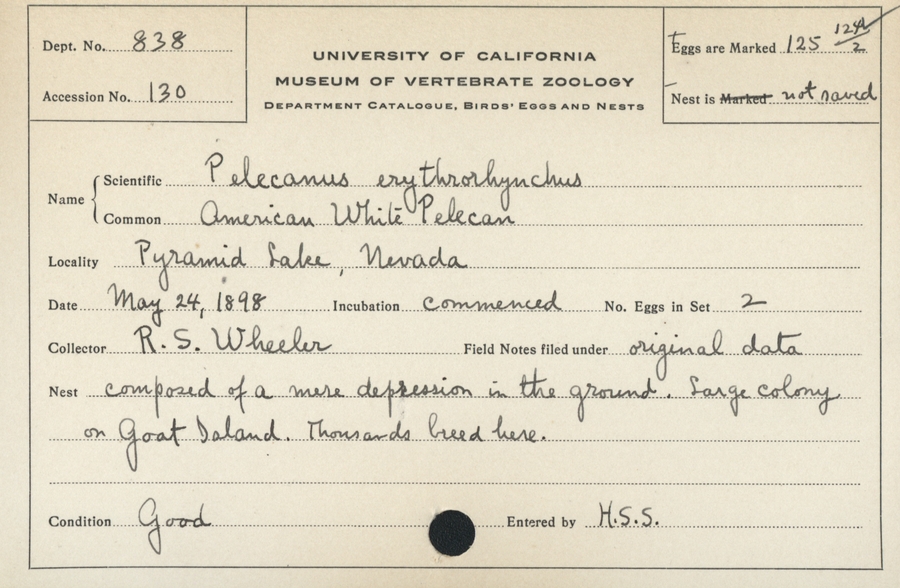 Dept. No. 838
Accession No. 130
UNIVERSITY OF CALIFORNIA
MUSEUM OF VERTEBRATE ZOOLOGY
DEPARTMENT CATALOGUE, BIRDS' EGGS AND NESTS
Eggs are Marked 125 124/2
Nest is Marked not saved
Name
Scientific Pelecanus erythrorhynchus
Common American White Pelecan
Locality Pyramid Lake, Nevada
Date May 24, 1898 Incubation commenced No. Eggs in Set 2
Collector R. S. Wheeler Field Notes filed under original data
Nest composed of a mere depression in the ground. Large colony
on Goat Island. Thousands breed here.
Condition Good Entered by H.S.S.